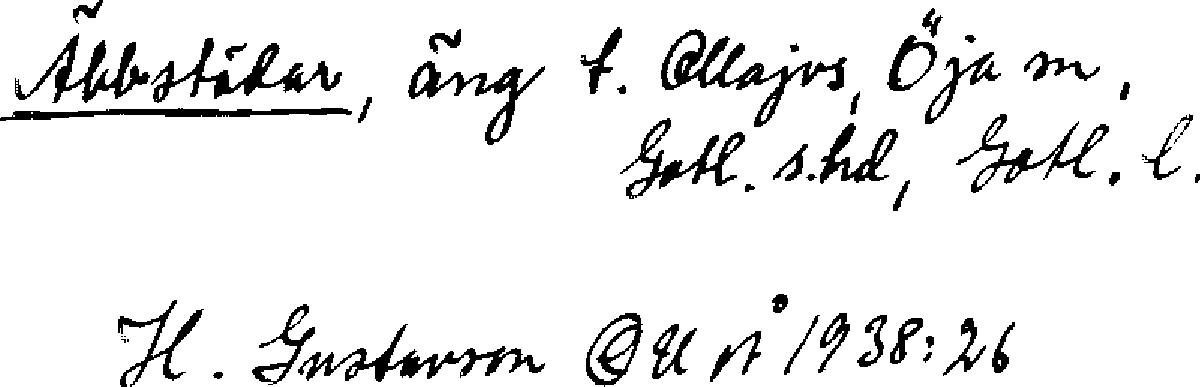 Äbbstädar, äng t. Ollajvs, Öja sn,
Gotl. s.hd, Gotl. l.
H. Gustavson OUÅ 1938:26